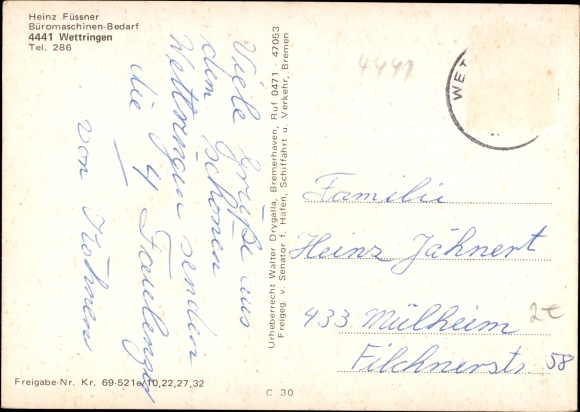 Heinz Füssner
Büromaschinen-Bedarf
4441 Wettringen
Tel. 286
Viele Grüße aus
dem schönen
Wettringen senden
die 4 Faulenzer
von
Urheberrecht Walter Drygalla, Bremerhaven, Ruf 0471 - 47053
Freigeg. v. Senator f. Häfen, Schiffahrt u. Verkehr, Bremen
4441
WET
Familie
Heinz Jähnert
433 Mülheim
2€
Filchnerstr. 58
Freigabe-Nr. Kr. 69-521e/10,22,27,32
C 30